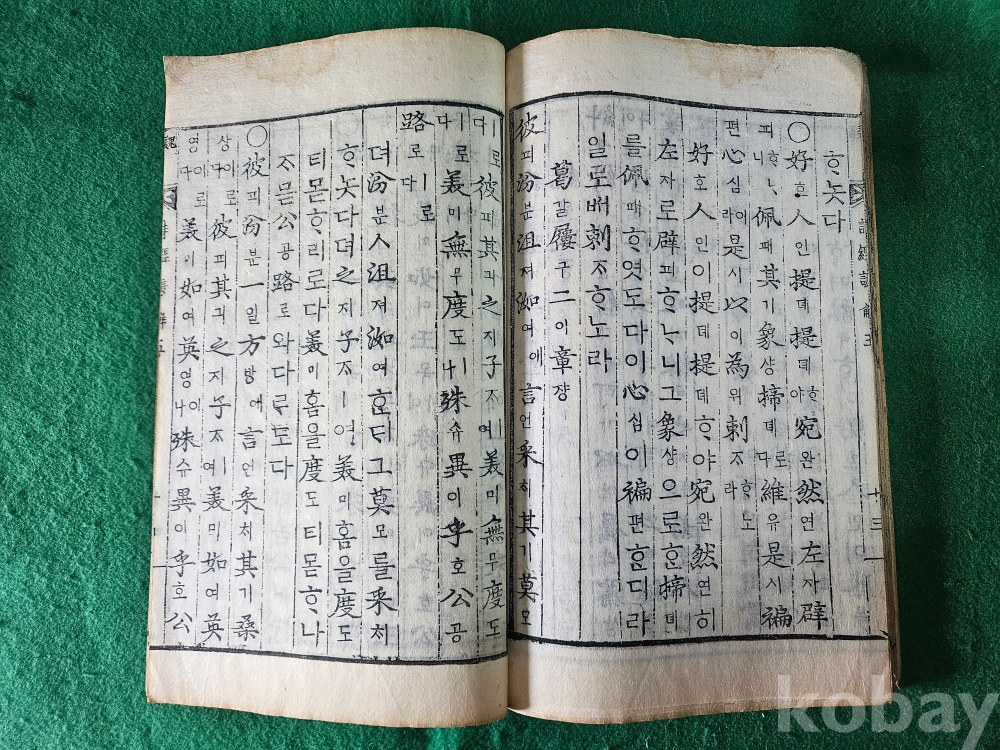 ᄒᆞ놋다
○好호人인提뎨提뎨ᄒᆞ야宛완然연左자辟
피ᄒᆞᄂᆞ니佩패其기象샹揥톄로다維유是시褊
편心심이라是시以이為위刺ᄌᆞᄒᆞ노라
好호人인이提뎨提뎨ᄒᆞ야宛완然연히
左자로辟피ᄒᆞᄂᆞ니그象샹으로ᄒᆞᆫ揥톄
를佩패ᄒᆞ엿도다이心심이褊편ᄒᆞᆫ디라
일로ᄡᅥ刺ᄌᆞᄒᆞ노라
葛갈屨구二이章쟝
彼피汾분沮져洳여애言언采ᄎᆡ其기莫모
ㅣ로다彼피其긔之지子ᄌᆞㅣ여美미無무度도
ㅣ로다美미無무度도ㅣ나殊슈異이乎호公공
路로ㅣ로다
뎌汾분ㅅ沮져洳여ᄒᆞᆫᄃᆡ그莫모를采ᄎᆡ
ᄒᆞ놋다뎌之지子ᄌᆞㅣ여美미홈을度도
티몯ᄒᆞ리로다美미홈을度도티몯ᄒᆞ나
ᄌᆞ몯公공路로와다ᄅᆞ도다
○彼피汾분一일方방애言언采ᄎᆡ其기桑
상이로다彼피其긔之지子ᄌᆞㅣ여美미如여英
영이로다美미如여英영이나殊슈異이乎호公
詩經諺解五
十三
kobay